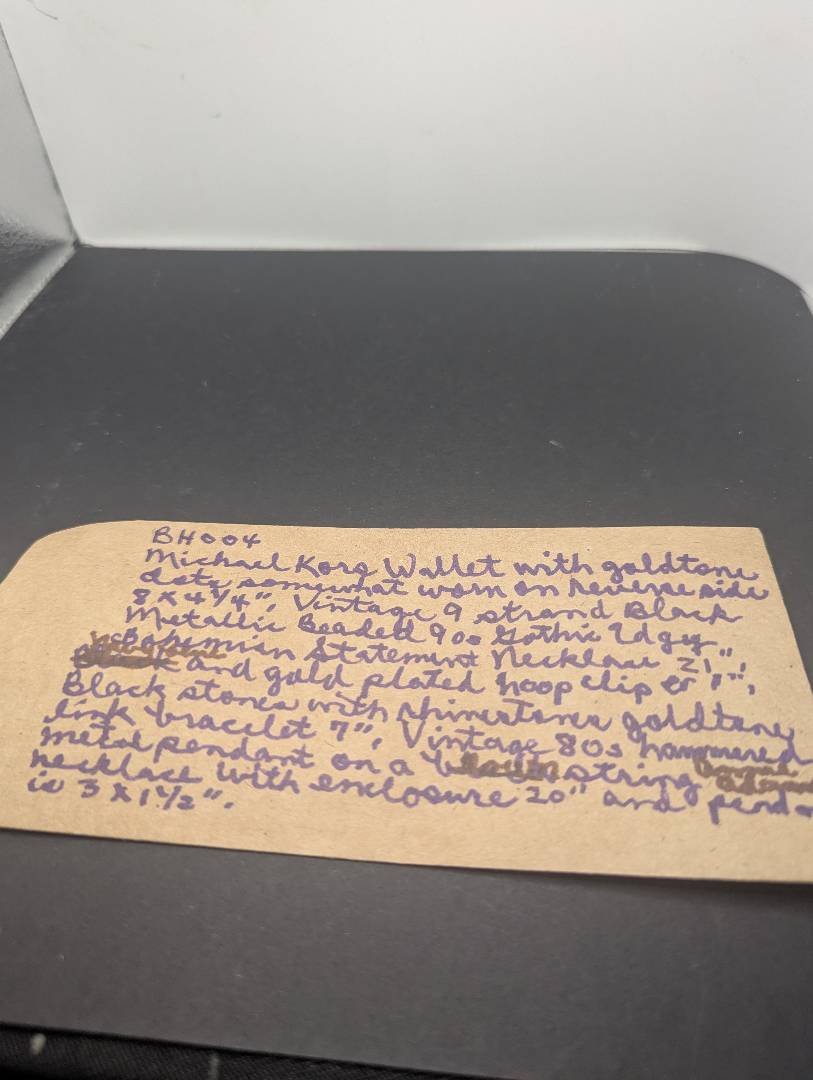 BH004
Michael Kors Wallet with goldtone
dots somewhat worn on reverse side
8 x 4 1/4", Vintage 9 strand Black
Metallic Beaded 90s Gothic Edgy
Bohemian Statement Necklace 21",
and gold plated hoop clip er 1",
Black stones with rhinestones goldtone
link bracelet 7", Vintage 80s hammered
metal pendant on a string
necklace with enclosure 20" and
is 3 x 1 1/2".